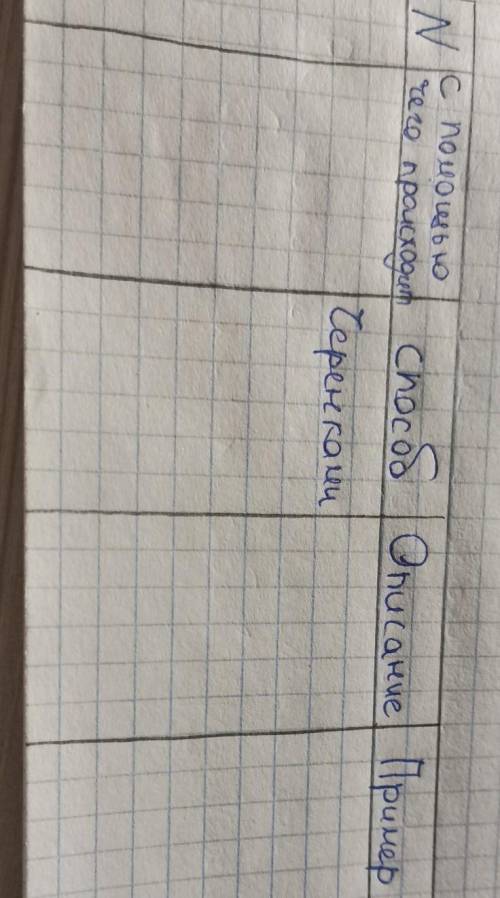 N
С помощью
чего происходит
Способ
Описание
Пример
Черенками